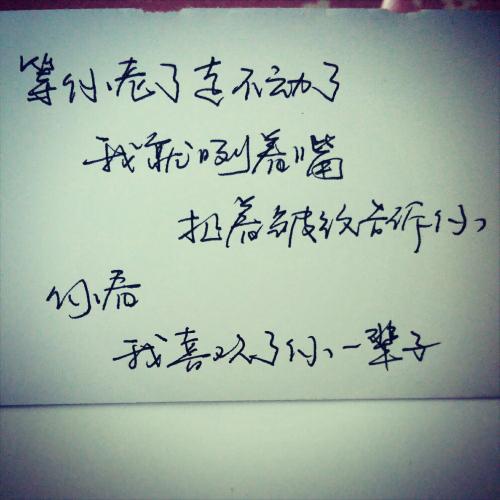 等你老了走不动了
我就咧着嘴
扯着皱纹告诉你
你看
我喜欢了你一辈子